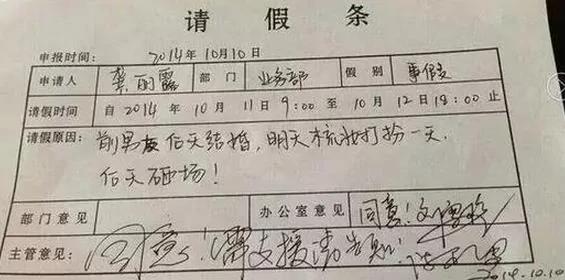 请假条
申报时间: 2014年10月10日
申请人 龚丽露 部门 业务部 假别 事假
请假时间 自2014年10月11日9:00至10月12日18:00止
请假原因: 前男友后天结婚,明天梳妆打扮一天,
后天砸场!
部门意见 办公室意见 同意!
主管意见 同意!需支援请告知!
2014.10.10